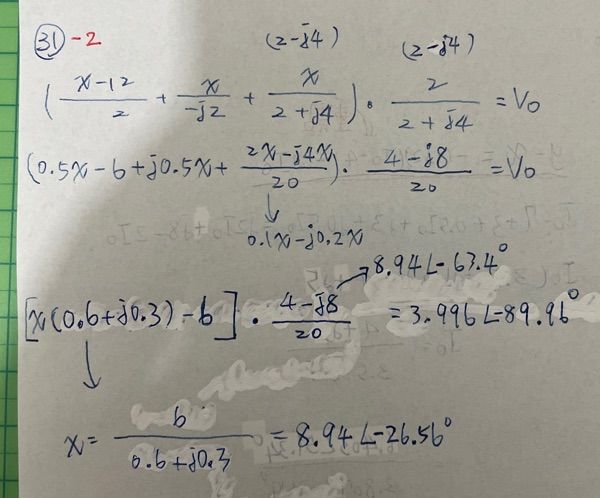 31 -2
(2-j4) (2-j4)
( x-12/2 + x/-j2 + x/2+j4 ) · 2/2+j4 = Vo
(0.5x-6+j0.5x+ 2x-j4x/20 ) · 4-j8/20 = Vo
0.1x-j0.2x
8.94∠-63.4°
[x(0.6+j0.3)-6] · 4-j8/20 = 3.996∠-89.96°
x = 6/0.6+j0.3 = 8.94∠-26.56°